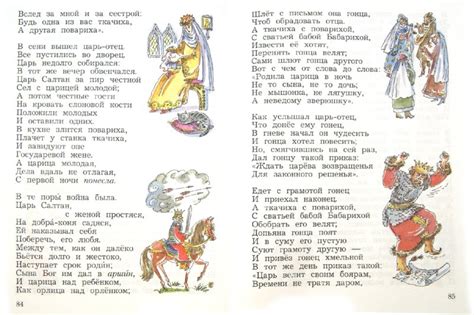 Вслед за мной и за сестрой:
Будь одна из вас ткачиха,
А другая повариха».
В сени вышел царь-отец.
Все пустились во дворец.
Царь недолго собирался:
В тот же вечер обвенчался.
Царь Салтан за пир честной
Сел с царицей молодой;
А потом честные гости
На кровать слоновой кости
Положили молодых
И оставили одних.
В кухне злится повариха,
Плачет у станка ткачиха,
И завидуют оне
Государевой жене.
А царица молодая,
Дела вдаль не отлагая,
С первой ночи понесла.
В те поры война была.
Царь Салтан,
с женой простяся,
На добра-коня садяся,
Ей наказывал себя
Поберечь, его любя.
Между тем, как он далёко
Бьётся долго и жестоко,
Наступает срок родин;
Сына Бог им дал в аршин,
И царица над ребёнком,
Как орлица над орлёнком;
84
Шлёт с письмом она гонца,
Чтоб обрадовать отца.
А ткачиха с поварихой,
С сватьей бабой Бабарихой
Извести её хотят,
Перенять гонца велят;
Сами шлют гонца другого
Вот с чем от слова до слова:
«Родила царица в ночь
Не то сына, не то дочь;
Не мышонка, не лягушку,
А неведому зверюшку».
Как услышал царь-отец,
Что донёс ему гонец,
В гневе начал он чудесить
И гонца хотел повесить;
Но, смягчившись на сей раз,
Дал гонцу такой приказ:
«Ждать царёва возвращенья
Для законного решенья».
Едет с грамотой гонец
И приехал наконец.
А ткачиха с поварихой,
С сватьей бабой Бабарихой
Обобрать его велят;
Допьяна гонца поят
И в суму его пустую
Суют грамоту другую —
И привёз гонец хмельной
В тот же день приказ такой:
«Царь велит своим боярам,
Времени не тратя даром,
85